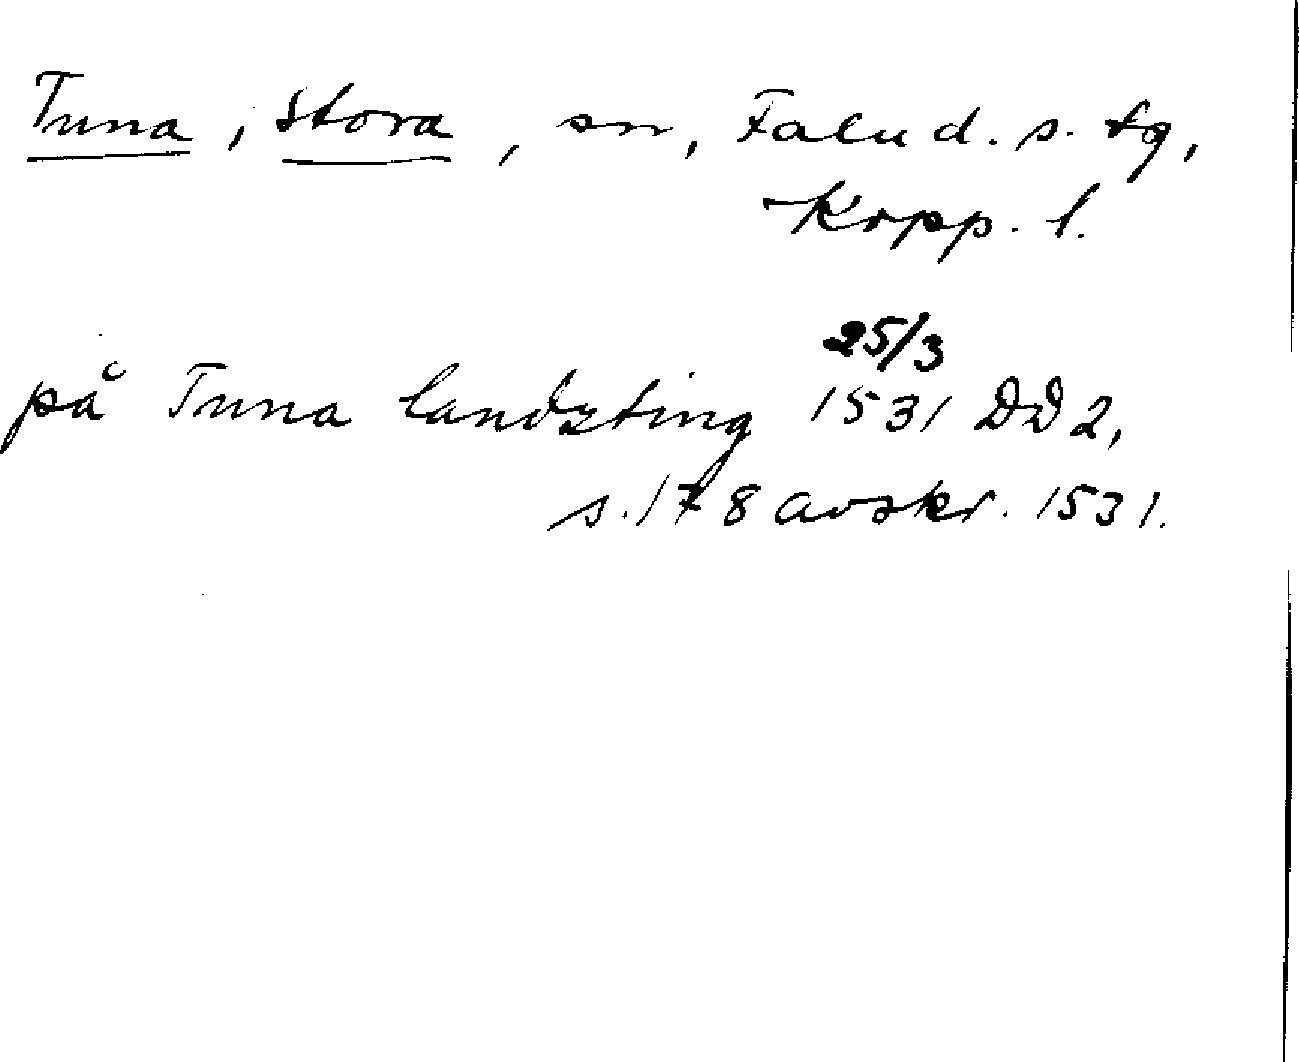 Tuna, Stora, sn, Falu d. s. tg,
Kopp. l.
på Tuna landzting 25/3 1531 DD 2,
s. 178 avskr. 1531.